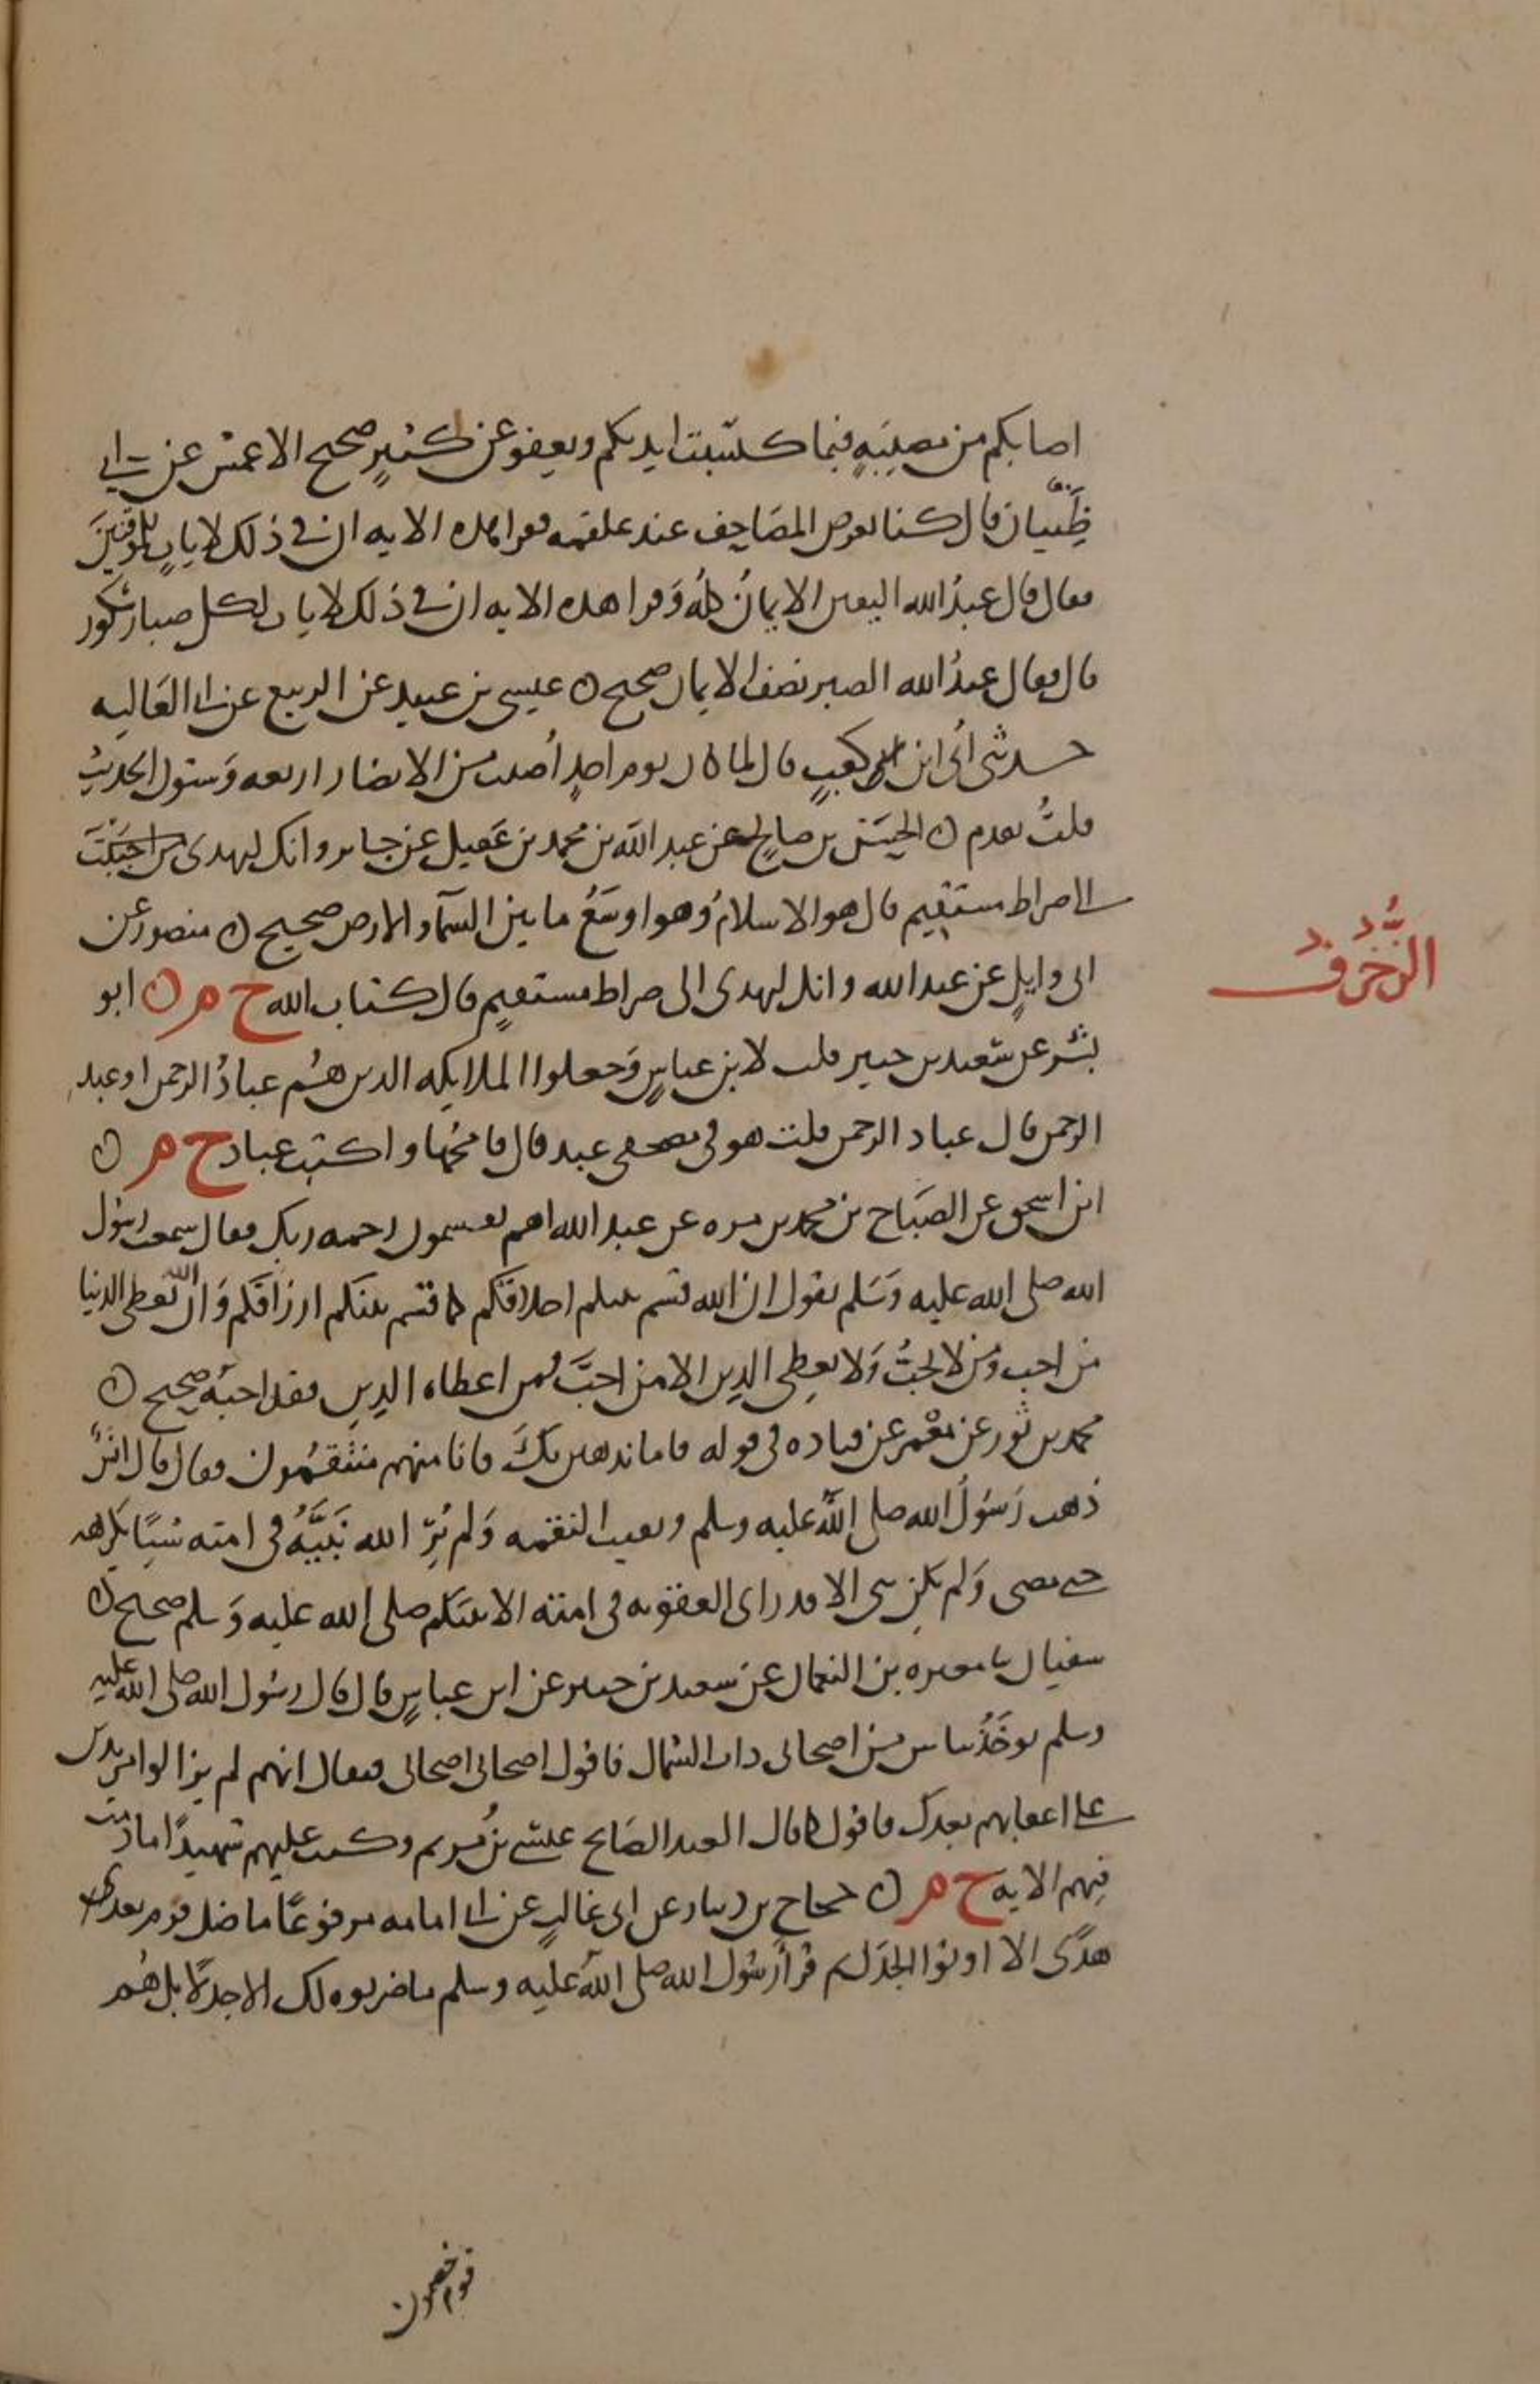 اصابكم من مصيبَةٍ فبما كسَبت ايديكم ويعفو عن كثيرٍ صحيح الاعمش عن ابي
ظَبيان قال كنا نعرض المصَاحف عند علقمه فقرا بهذه الايه ان في ذلك لايات للموقنينَ
فقال قال عبدُ الله اليقين الايمانُ كلُّه وَقرا هذه الايه ان في ذلك لايات لكل صبار شكور
قال فقال عبدُ الله الصبر نصف الايمان صحيح ن عيسى بن عبيد عن الربيع عن ابي العَاليه
حدثني أُبي ابن كعبٍ قال لما كان يوم احدٍ أُصيب من الانصار اربعه وَستون الحديث
قلتُ تقدم ن الحسَن بن صالح عن عبد الله بن محمد بن عَقيل عن جابر وانك لتهدى
الى صراط مستقيم قال هو الاسلامُ وهو اوسَعُ ما بين السمآ والارض صحيح ن منصور عن
ابى وايلٍ عن عبد الله وانك لتهدى الى صراط مستقيمٍ قال كتاب الله خ م ن ابو
الزُّخْرُف
بشر عن سَعيد بن جبير قلت لابن عباسٍ وَجعلوا الملايكه الذين هُم عبادُ الرحمن او عبد
الرحمن قال عباد الرحمن قلت هو فى مصحفى عبد قال فامحُها واكتب عباد خ م ن
ابن اسحق عن الصَبَاح بن محمد بن مره عن عبد الله اهم يقسمون رحمه ربك فقال سمعت رسُول
الله صلى الله عليه وَسَلم يقول ان الله قسَم بينكم اخلاقكم كما قسَم بينكم ارزاقكم وَان الله يُعطى الدنيا
من احب ومن لا يحبُّ وَلا يعطِى الدين الا من احبَّ فمن اعطاه الدين فقد احبهُ صحيح ن
محمد بن ثور عن معْمر عن قتاده فى قوله فاما نذهبن بكَ فانا منهم منتقمُون فقال قال انسٌ
ذهب رَسُولُ الله صلى الله عليه وسلم وبقيت النقمه وَلم يُرِ الله نَبيَّهُ فى امته شيئًا يكرهه
حتى مضى وَلم يكن نبى الا وقد راى العقوبه فى امته الا نبيكم صلى الله عليه وَسلم صحيح ن
سفيان نا مغيره بن النعمان عن سعيد بن جبير عن ابن عباسٍ قال قال رسُول الله صلى الله عليه
وسلم يوخَذُ بناس من اصحابى ذات الشمال فاقول اصحابى اصحابى فيقال انهم لم يزالوا مرتدين
على اعقابهم بعدك فاقول كما قال العبد الصَالح عيسَى بنُ مريم وكنت عليهم شهيدًا ما دمت
فيهم الايه خ م ن حجاج بن دينار عن ابى غالبٍ عن ابى امامه مرفوعًا ما ضل قوم بعد
هدًى الا اوتوا الجدَل ثم قرا رسُول الله صلى الله عليه وسلم ما ضربوه لك الا جدلًا بل هُم
قوم خصمون